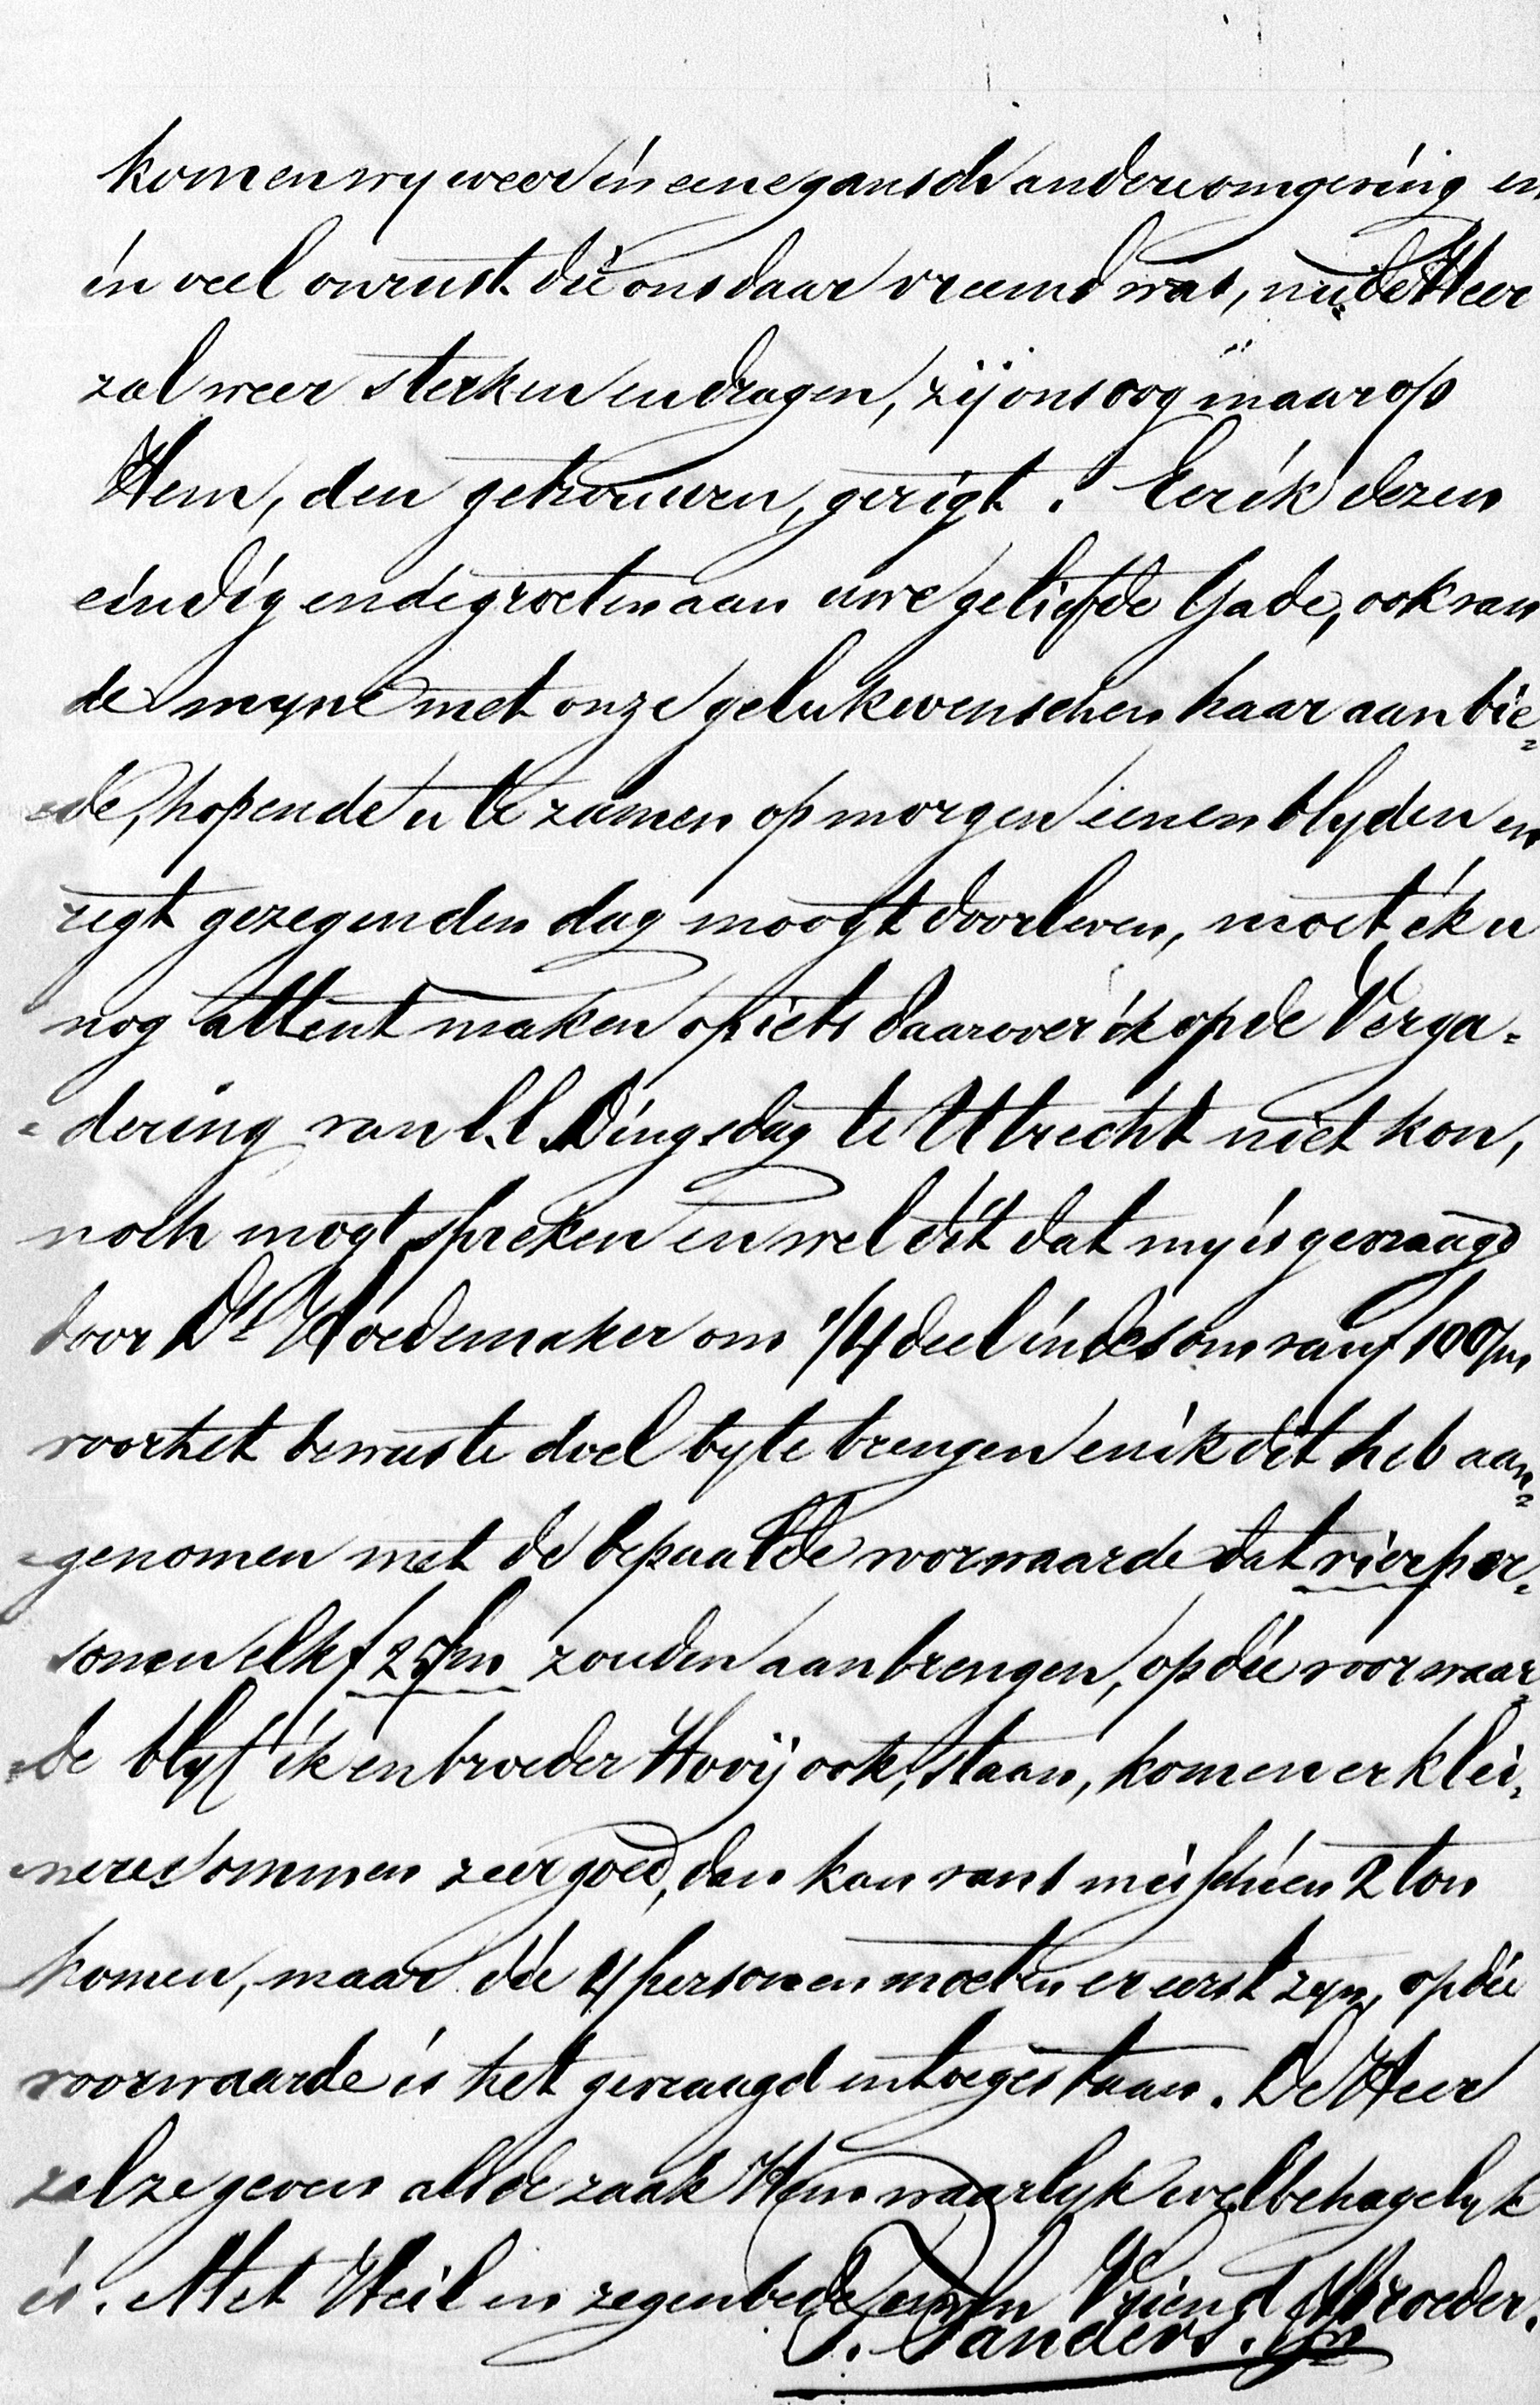 komen wy weer in eene gansch andere omgeving en
in veel onrust die ons daar vreemd was, nu de Heer
zal weer sterken en dragen, zij ons oog maar op
Hem, den getrouwen, gerigt. Eer ik dezen
eindig en de groeten aan uwe geliefde Gade, ook van
de myne met onze gelukwenschen haar aanbie=
=de, hopende u te zamen op morgen eenen blyden en
regt gezegenden dag moogt doorleven, moet ik u
nog attent maken op iets daarover ik op de Verga=
=dering van l.l. Dingsdag te Utrecht niet kon,
noch mogt spreken en wel dit dat my is gevraagd
door Dr Hoedemaker om 1/4 deel in de som van f 100/m
voor het bewuste doel by te brengen en ik dit heb aan=
=genomen met de bepaalde voorwaarde dat vier per=
sonen elk f 25/m zouden aanbrengen, op die voorwaar=
=de blyf ik en broeder Hovij ook, staan, komen er klei=
=nere sommen zeer goed, dan kan vans misschien 2 ton
komen, maar die 4 personen moeten er eerst zyn, op die
voorwaarde is het gevraagd en toegestaan. De Heer
zal ze geven als de zaak Hem waarlyk welbehagelyk
is. Met Heil en zegenbede Vriend & Broeder.
J. Sanders. Jn